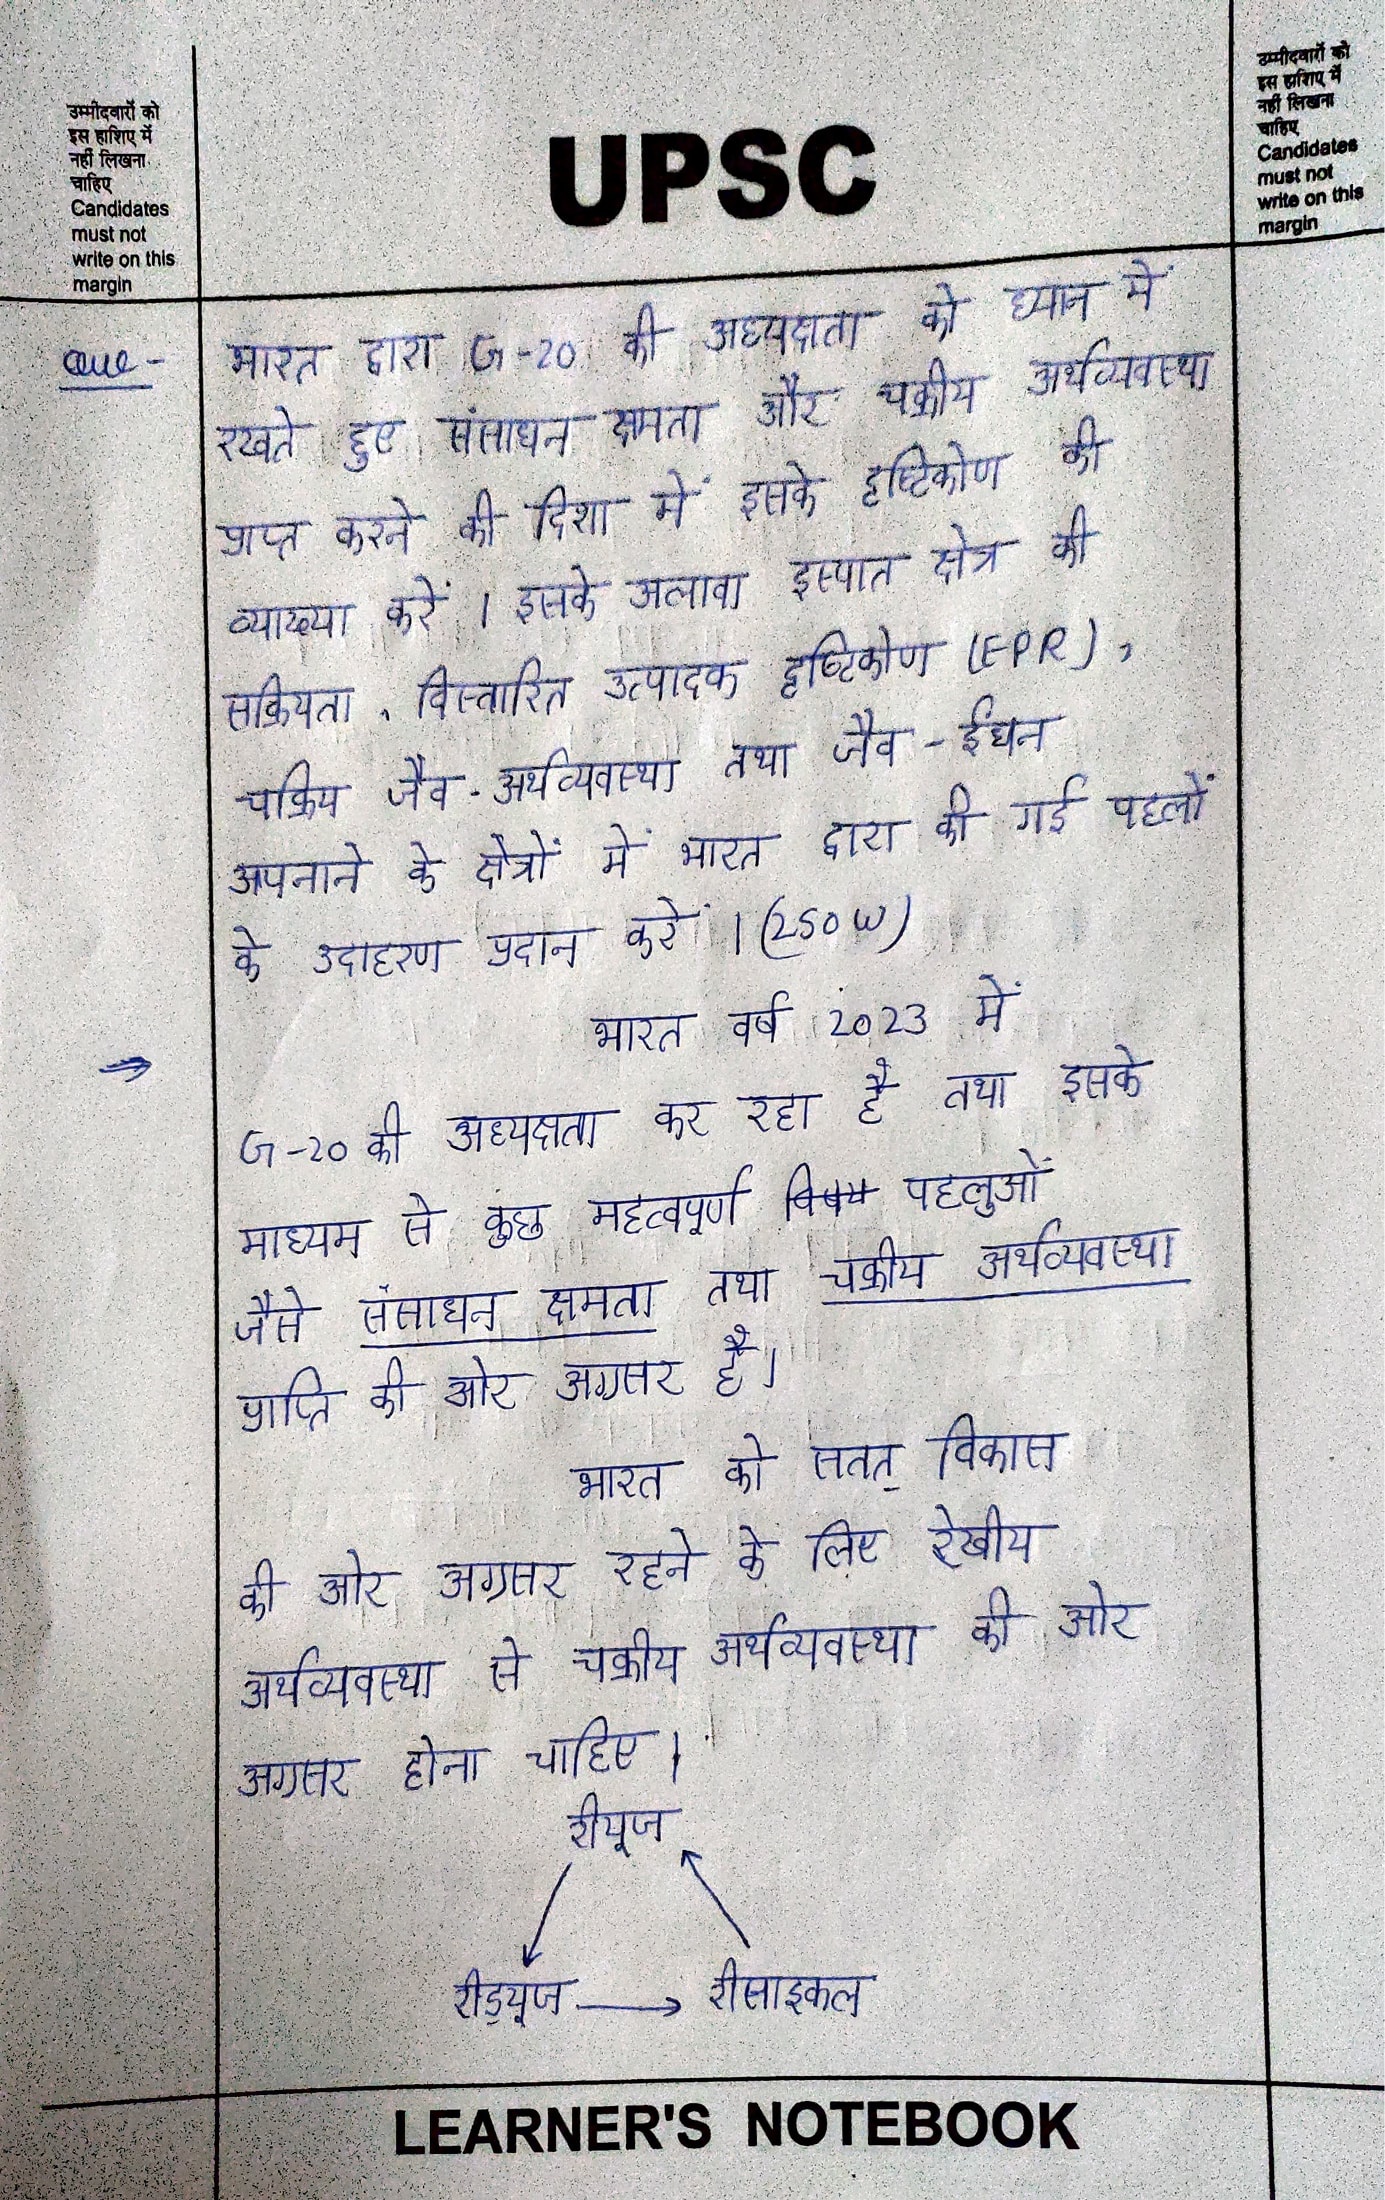 उम्मीदवारों को
इस हाशिए में
नहीं लिखना
चाहिए
Candidates
must not
write on this
margin
UPSC
उम्मीदवारों को
इस हाशिए में
नहीं लिखना
चाहिए
Candidates
must not
write on this
margin
Que - भारत द्वारा G-20 की अध्यक्षता को ध्यान में
रखते हुए संसाधन क्षमता और चक्रीय अर्थव्यवस्था
प्राप्त करने की दिशा में इसके दृष्टिकोण की
व्याख्या करें । इसके अलावा इस्पात क्षेत्र की
सक्रियता , विस्तारित उत्पादक दृष्टिकोण (EPR) ,
चक्रिय जैव - अर्थव्यवस्था तथा जैव - ईंधन
अपनाने के क्षेत्रों में भारत द्वारा की गई पहलों
के उदाहरण प्रदान करें । (250 W)
→ भारत वर्ष 2023 में
G-20 की अध्यक्षता कर रहा है तथा इसके
माध्यम से कुछ महत्वपूर्ण विषय पहलुओं
जैसे संसाधन क्षमता तथा चक्रीय अर्थव्यवस्था
प्राप्ति की ओर अग्रसर है।
भारत को सतत् विकास
की ओर अग्रसर रहने के लिए रेखीय
अर्थव्यवस्था से चक्रीय अर्थव्यवस्था की ओर
अग्रसर होना चाहिए ।
रीयूज
रीड्यूज → रीसाइकल
LEARNER'S NOTEBOOK